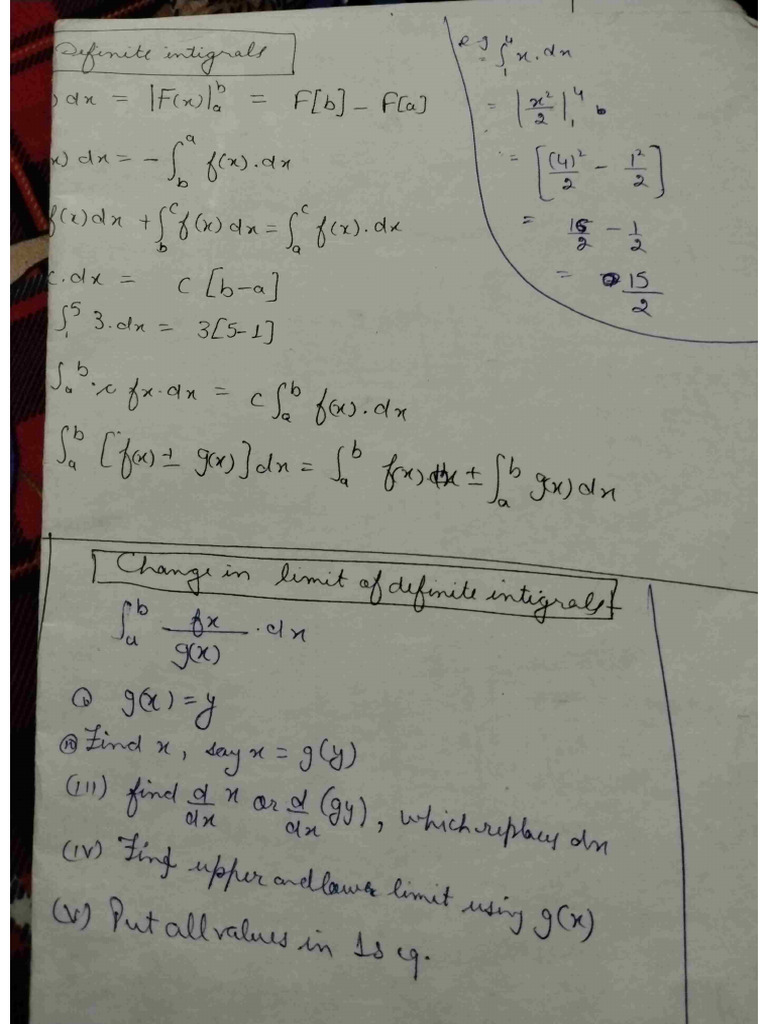 Definite intigrals
) dx = |F(x)|ₐᵇ = F[b] - F[a]
x) dx = - ∫_b^a f(x).dx
f(x) dx + ∫_b^c f(x) dx = ∫_a^c f(x).dx
c.dx = c [b-a]
∫_1^5 3.dx = 3[5-1]
∫_a^b .c fx.dx = c ∫_a^b f(x).dx
∫_a^b [f(x) ± g(x)] dx = ∫_a^b f(x) dx ± ∫_a^b g(x) dx
e.g ∫_1^4 x.dx
= |x²/2|_1^4
= [(4)²/2 - 1²/2]
= 16/2 - 1/2
= 15/2
Change in limit of definite intigrals
∫_a^b fx/g(x) .dx
(i) g(x) = y
(ii) Find x, say x = g(y)
(iii) find d/dx x or d/dx (gy), which replacy dx
(iv) Find upper and lower limit using g(x)
(v) Put all values in 1s eq.